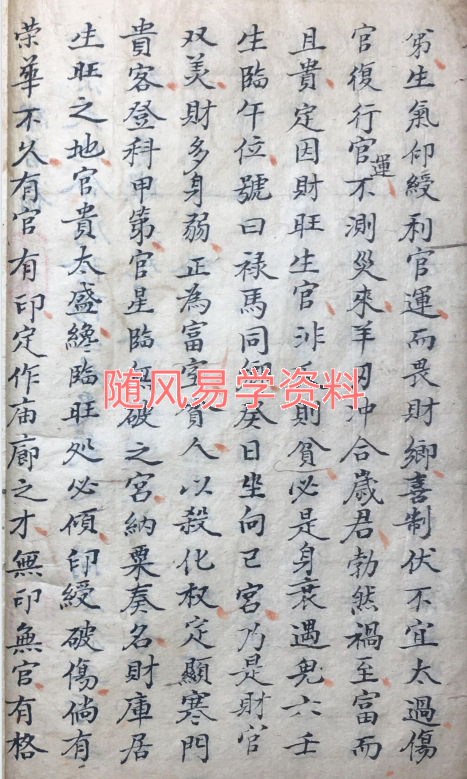 生氣仰綬利官運而畏財鄉喜制伏不宜太過傷
官復行官運不測災來羊刃沖合歲君勃然禍至富而
且貴定因財旺生官非夭則貧必是身衰遇鬼六壬
生臨午位號曰禄馬同鄉癸日坐向巳宮乃是財官
双美財多身弱正為富室貧人以殺化权定顯寒門
貴客登科甲第官星臨無破之宮納粟奏名財庫居
生旺之地官貴太盛纔臨旺処必傾印綬破傷倘有
荣華不久有官有印定作庙廊之才無印無官有格
随风易学资料